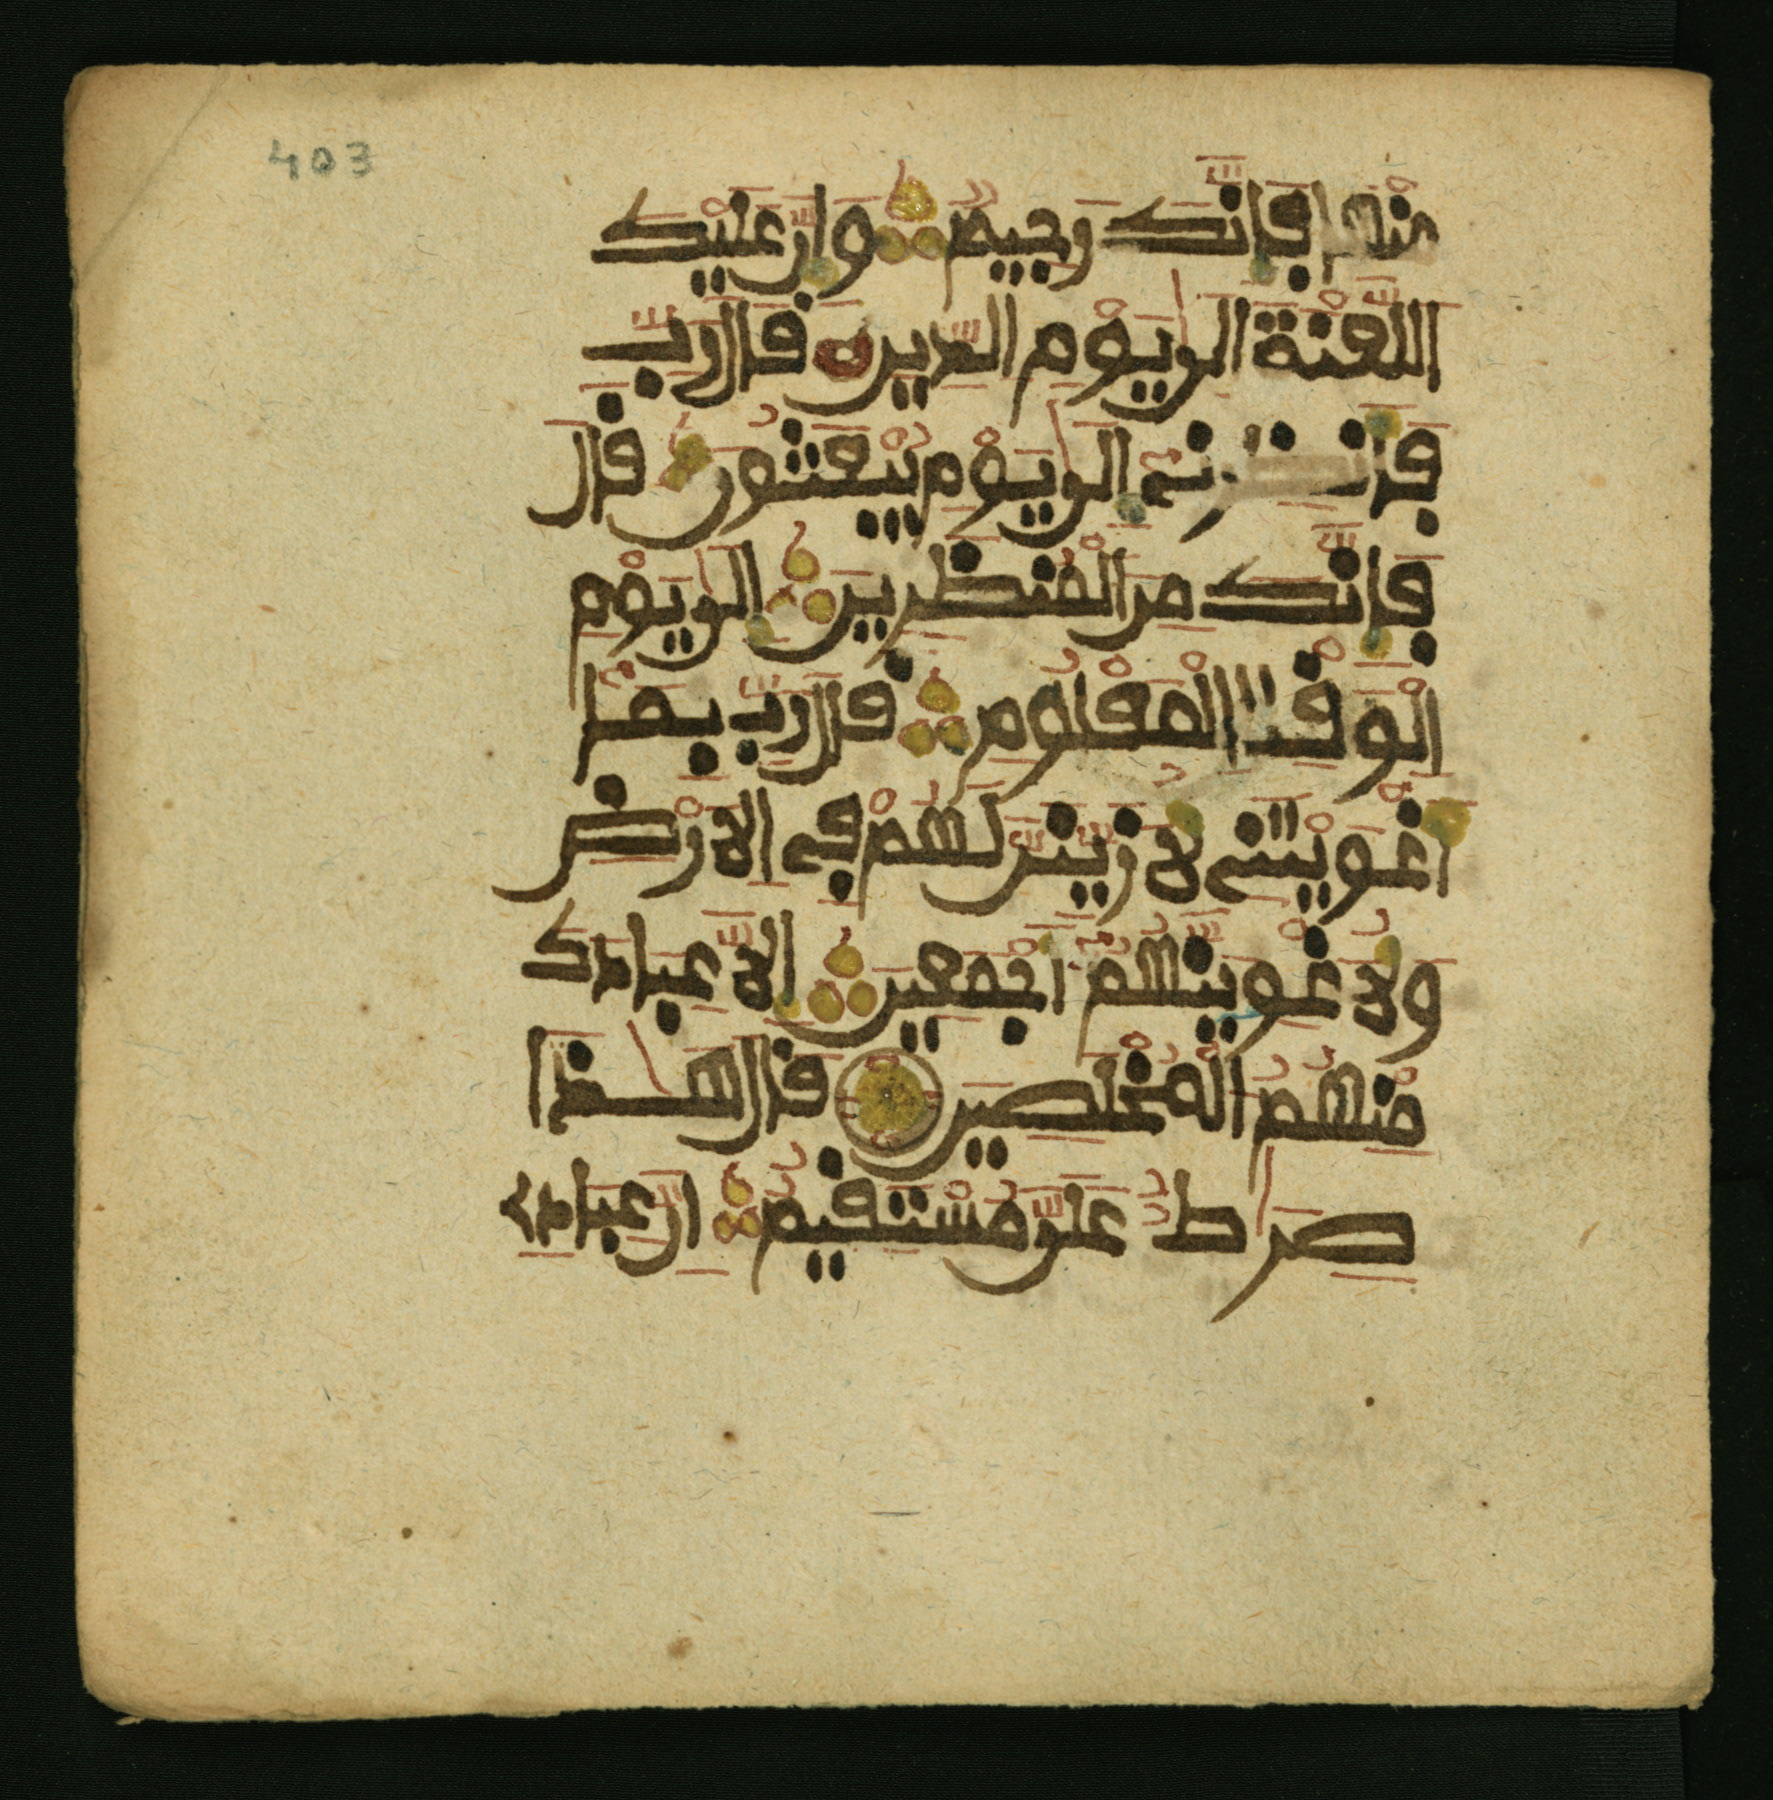 403
مِنْهَا فَإِنَّكَ رَجِيمٌ وَإِنَّ عَلَيْكَ
اللَّعْنَةَ إِلَىٰ يَوْمِ الدِّينِ قَالَ رَبِّ
فَأَنظِرْنِي إِلَىٰ يَوْمِ يُبْعَثُونَ قَالَ
فَإِنَّكَ مِنَ الْمُنظَرِينَ إِلَىٰ يَوْمِ
الْوَقْتِ الْمَعْلُومِ قَالَ رَبِّ بِمَا
أَغْوَيْتَنِي لَأُزَيِّنَنَّ لَهُمْ فِي الْأَرْضِ
وَلَأُغْوِيَنَّهُمْ أَجْمَعِينَ إِلَّا عِبَادَكَ
مِنْهُمُ الْمُخْلَصِينَ قَالَ هَٰذَا
صِرَٰطٌ عَلَيَّ مُسْتَقِيمٌ إِنَّ عِبَادِي